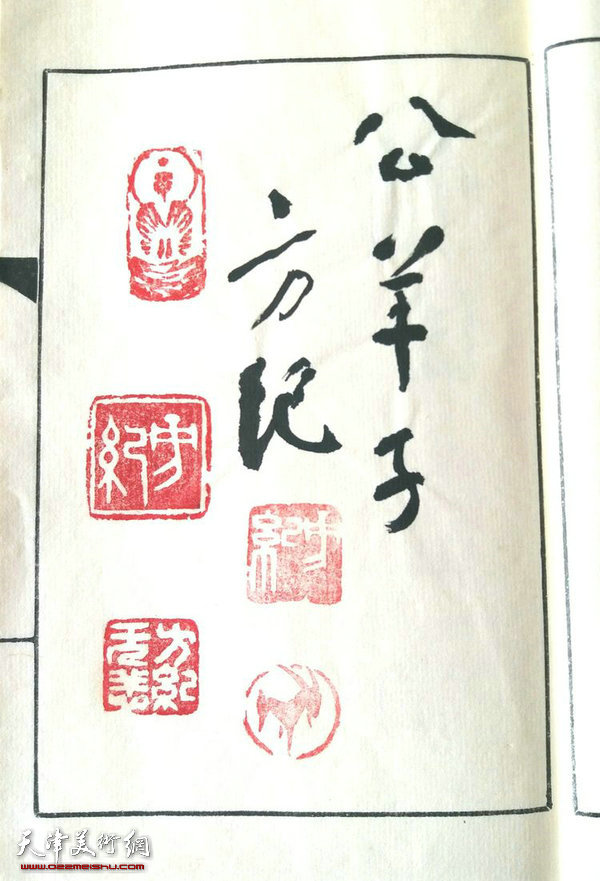 公羊子
方纪
方紀
方紀
方紀
天津美術網
www.022meishu.com